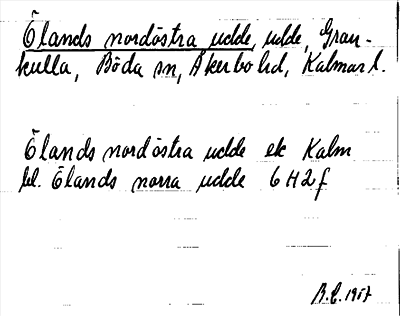 Ölands nordöstra udde, udde, Gran-
kulla, Böda sn, Åkerbo hd, Kalmar l.
Ölands nordöstra udde ek Kalm
bl. Ölands norra udde 6H2f
B.E. 1957